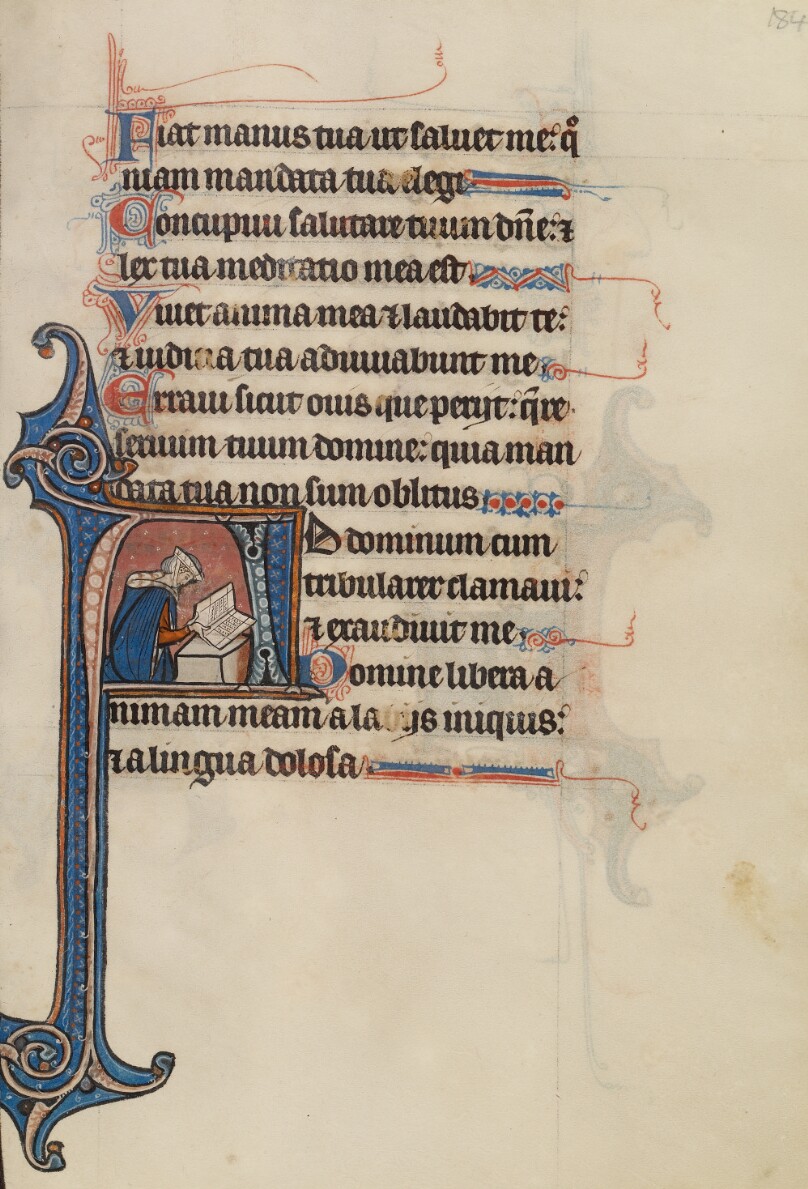 184
Fiat manus tua ut saluet me: qm̄
niam mandata tua elegi
Concupiui salutare tuum dñe: ⁊
lex tua meditatio mea est
Uiuet anima mea ⁊ laudabit te:
⁊ iudicia tua adiuuabunt me
Erraui sicut ouis que perijt: q̄re
seruum tuum domine: quia man
data tua non sum oblitus
AD dominum cum
tribularer clamaui:
⁊ exaudiuit me
Domine libera a
nimam meam a labijs iniquis:
⁊ a lingua dolosa